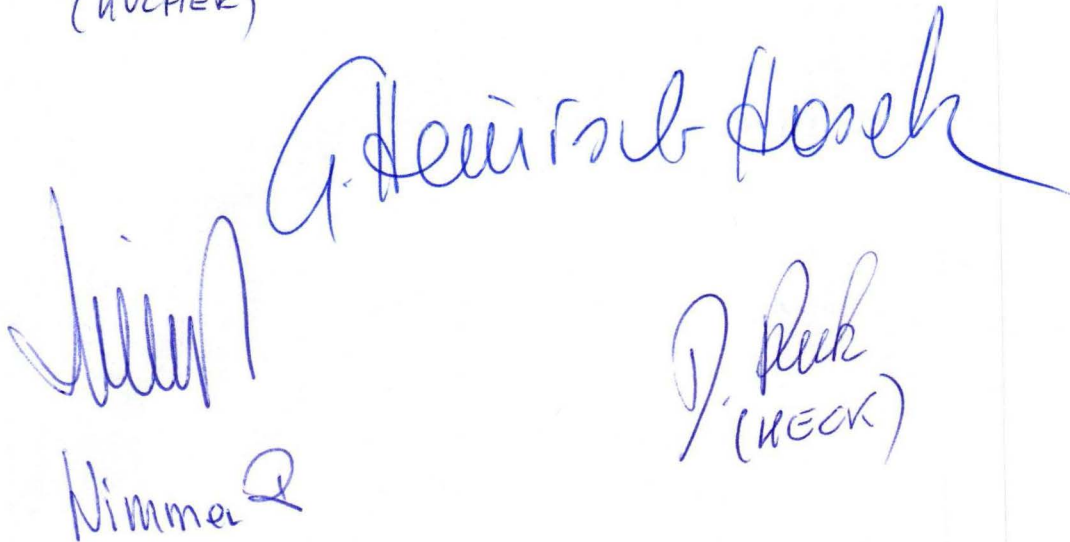 (KUCHER)
G. Heinisch-Hosek
D. Keck
(KECK)
Wimmer